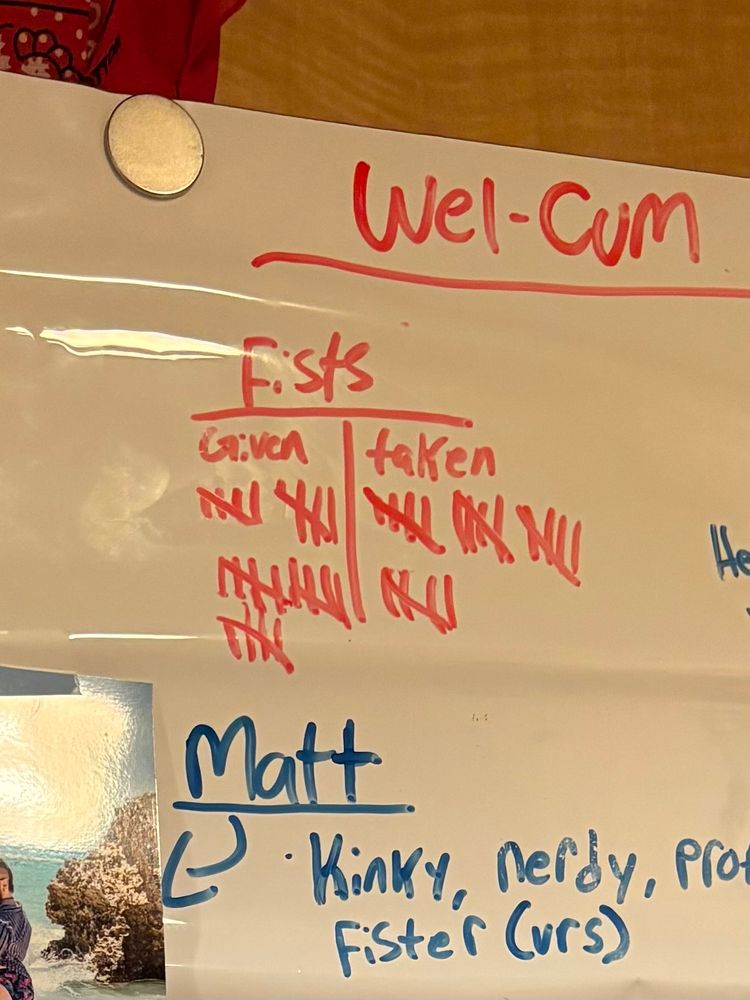 Wel-Cum
Fists
Given taken
He
Matt
· Kinky, nerdy, prof
Fister (vrs)